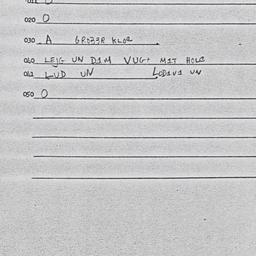 020 O
030 A GROZ3R KLOR
040 LEJG UN DIM VUG+ MIT HOLZ
041 LUD UN LODIVI UN
050 O